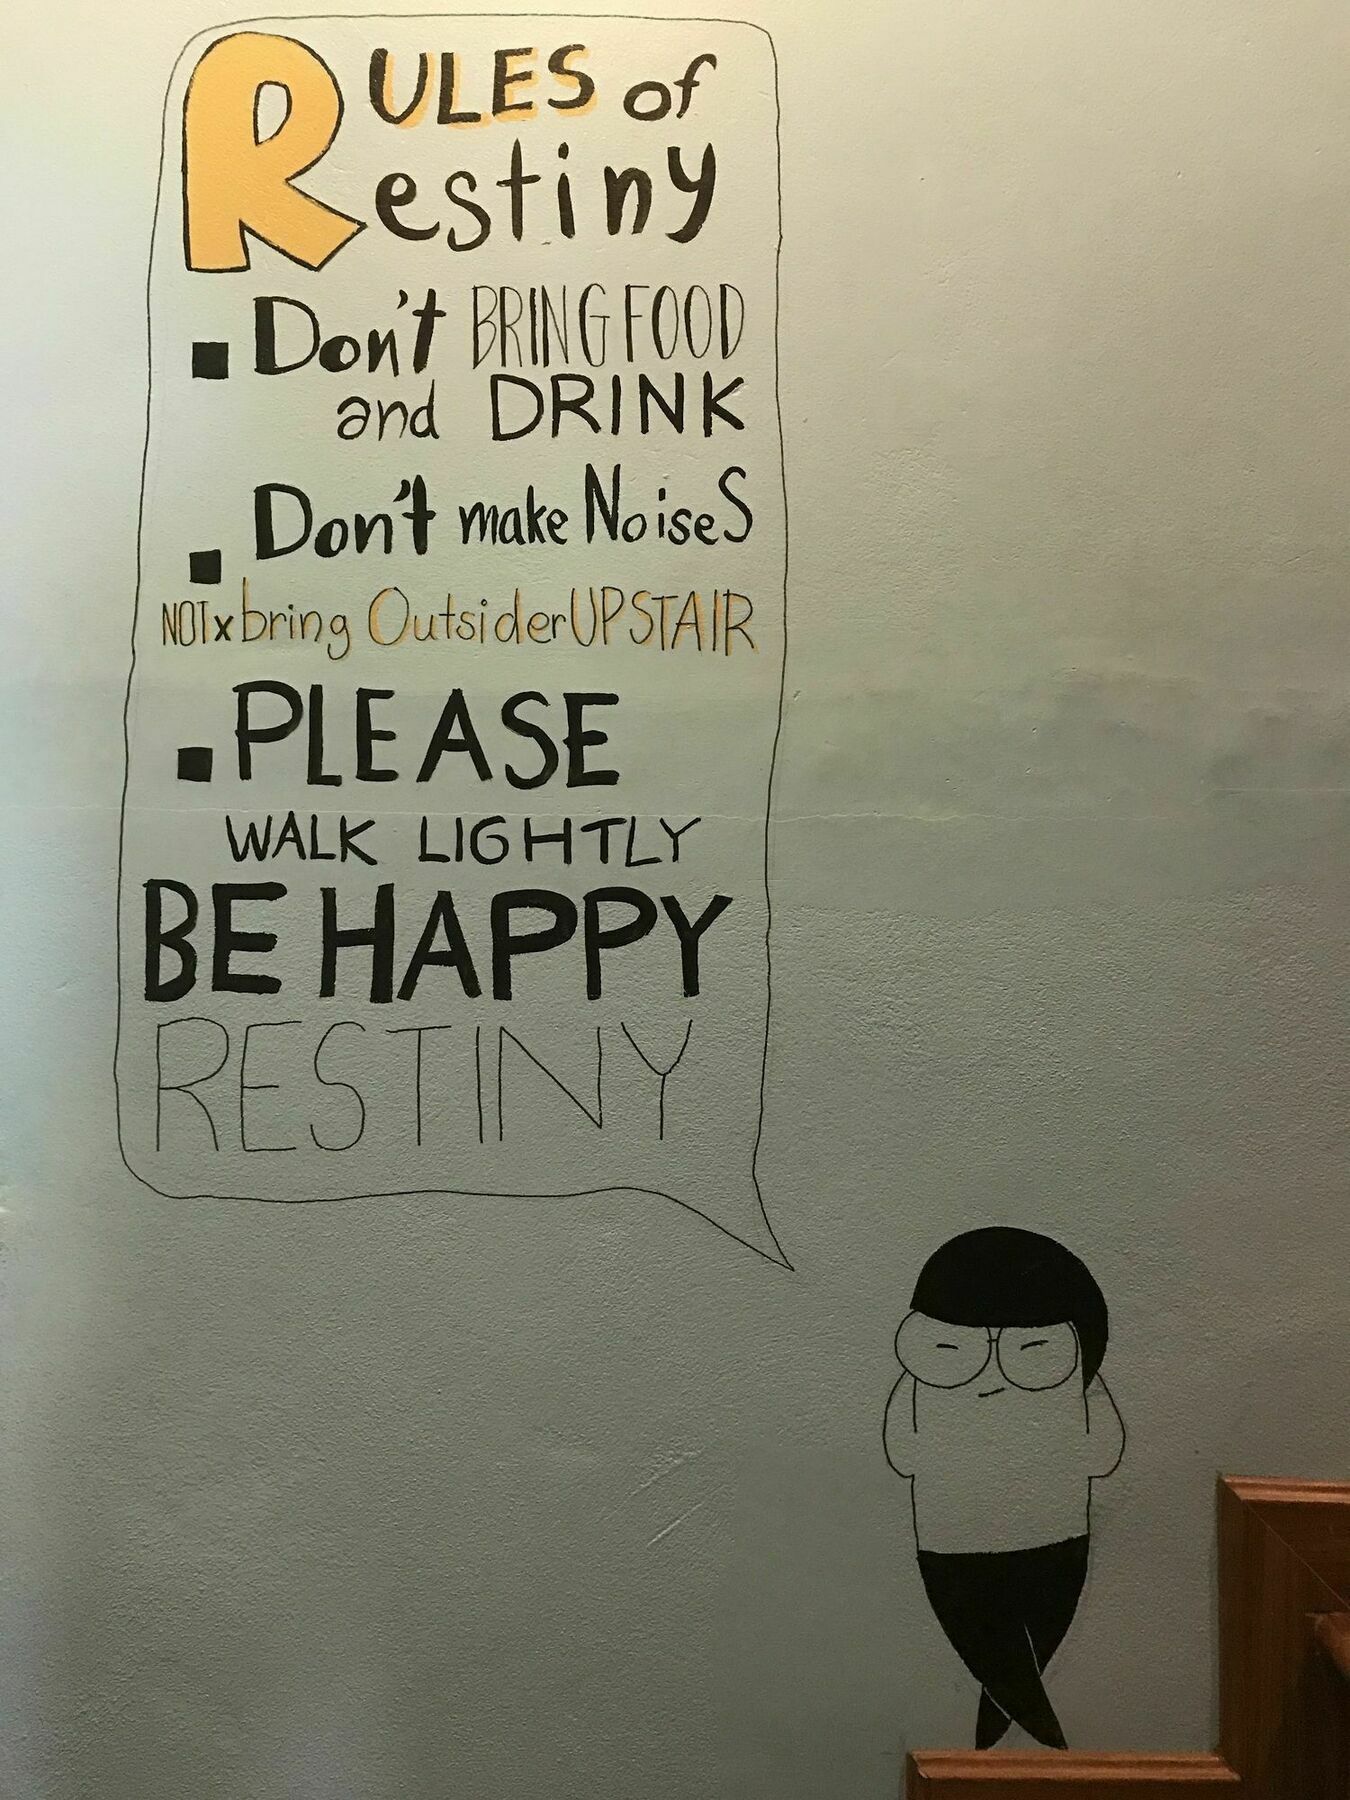 RULES of
Restiny
Don't BRING FOOD
and DRINK
Don't make NoiseS
NOT x bring Outsider UPSTAIR
PLEASE
WALK LIGHTLY
BE HAPPY
RESTINY